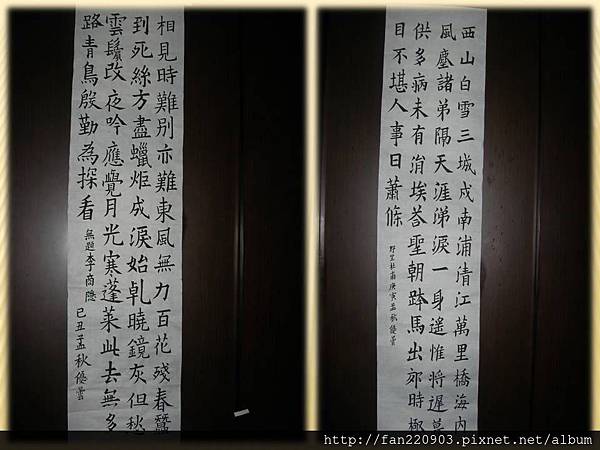 相見時難別亦難東風無力百花殘春蠶
到死絲方盡蠟炬成淚始乹曉鏡灰但愁
雲鬢改夜吟應覺月光寒蓬萊此去無多
路青鳥殷勤為探看
無題李商隱
己丑孟秋優曇
西山白雪三城戍南浦清江萬里橋海內
風塵諸弟隔天涯涕淚一身遙惟將遲暮
供多病未有涓埃荅聖朝跨馬出郊時極
目不堪人事日蕭條
野望杜甫庚寅孟秋優曇
http://fan220903.pixnet.net/album